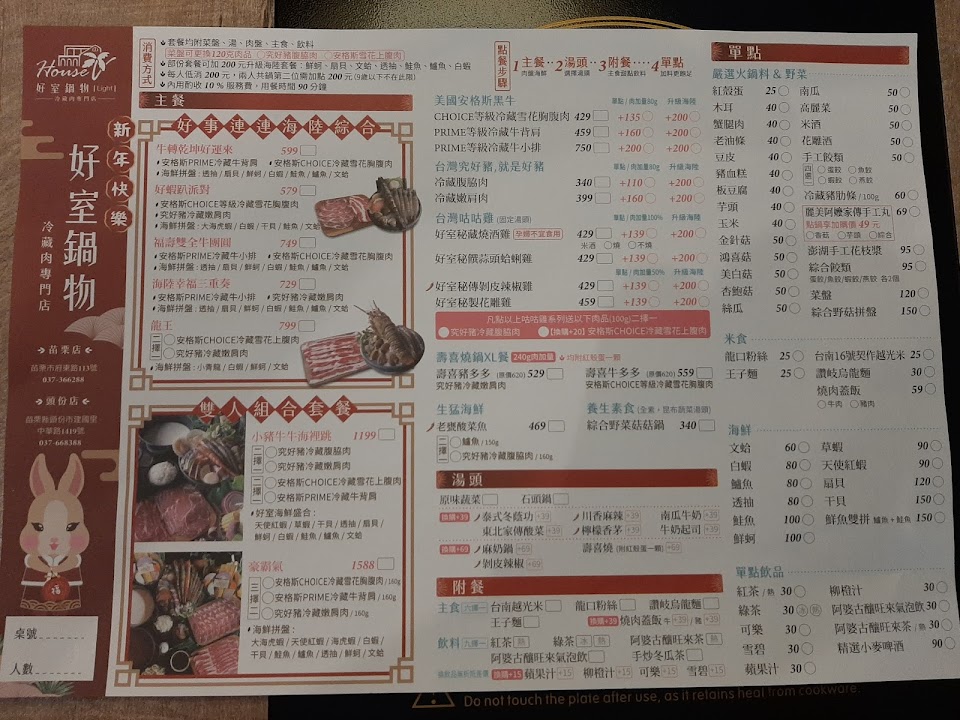 House
好室鍋物 [Light]
冷藏肉專門店
新年快樂
好室鍋物
冷藏肉專門店
苗栗店
苗栗市府東路113號
037-366288
頭份店
苗栗縣頭份市建國里
中華路1419號
037-668388
福
桌號
人數
消費方式
套餐均附菜盤、湯、肉盤、主食、飲料
菜盤可更換120克肉品 究好豬腹脇肉 安格斯雪花上腹肉
部份套餐可加 200元升級海陸套餐：鮮蚵、扇貝、文蛤、透抽、鮭魚、鱸魚、白蝦
每人低消 200元，兩人共鍋第二位需加點 200元 (9歲以下不在此限)
內用酌收 10% 服務費，用餐時間 90分鐘
主餐
好事連連海陸綜合
牛轉乾坤好運來 599
安格斯PRIME冷藏牛背肩 安格斯CHOICE冷藏雪花胸腹肉
海鮮拼盤：透抽 / 扇貝 / 鮮蚵 / 白蝦 / 鮭魚 / 文蛤
好蝦趴派對 579
安格斯CHOICE等級冷藏雪花胸腹肉
究好豬冷藏嫩肩肉
海鮮拼盤：大海虎蝦 / 天使紅蝦 / 草蝦 / 白蝦
福壽雙全牛團圓 749
安格斯PRIME冷藏牛小排 安格斯CHOICE冷藏雪花胸腹肉
海鮮拼盤：透抽 / 扇貝 / 鮮蚵 / 白蝦 / 鮭魚 / 文蛤
海陸幸福三重奏 729
安格斯PRIME冷藏牛小排 究好豬冷藏嫩肩肉
海鮮拼盤：透抽 / 扇貝 / 鮮蚵 / 白蝦 / 鮭魚 / 文蛤
龍王 799
二擇一
安格斯CHOICE冷藏雪花上腹肉
究好豬冷藏嫩肩肉
海鮮拼盤：小青龍 / 白蝦 / 鮮蚵 / 文蛤
雙人組合套餐
小豬牛牛海裡跳 1199
二擇一
究好豬冷藏腹脇肉
究好豬冷藏嫩肩肉
二擇一
安格斯CHOICE冷藏雪花上腹肉
安格斯PRIME冷藏牛背肩
好室海鮮盛合：
天使紅蝦 / 草蝦 / 干貝 / 透抽 / 扇貝 /
鮮蚵 / 白蝦 / 鮭魚 / 鱸魚 / 文蛤
豪霸氣 1588
三擇二
安格斯CHOICE冷藏雪花上腹肉 / 160g
安格斯PRIME冷藏牛背肩 / 160g
究好豬冷藏嫩肩肉 / 160g
海鮮拼盤：
大海虎蝦 / 天使紅蝦 / 海虎蝦 / 白蝦
干貝 / 鮭魚 / 鱸魚 / 透抽 / 鮮蚵 / 文蛤
點餐步驟
1主餐 2湯頭 3附餐 4單點
肉盤海鮮 選擇湯頭 主食甜點飲料 加料更飽足
美國安格斯黑牛 單點 / 肉加量80g 升級海陸
CHOICE等級冷藏雪花胸腹肉 429 +135 +200
PRIME等級冷藏牛背肩 459 +160 +200
PRIME等級冷藏牛小排 750 +200 +200
台灣究好豬，就是好豬 單點 / 肉加量80g 升級海陸
冷藏腹脇肉 340 +110 +200
冷藏嫩肩肉 399 +160 +200
台灣咕咕雞 (固定湯頭) 單點 / 肉加量100% 升級海陸
好室秘藏燒酒雞 孕婦不宜食用 429 +139 +200
米酒 燒 不燒
好室秘饌蒜頭蛤蜊雞 459 +139 +200
單點 / 肉加量50% 升級海陸
好室秘傳剝皮辣椒雞 429 +139 +200
好室秘製花雕雞 459 +139 +200
凡點以上咕咕雞系列送以下肉品(100g)二擇一
究好豬冷藏腹脇肉 【換購+20】安格斯CHOICE冷藏雪花上腹肉
壽喜燒鍋XL餐 240g肉加量 均附紅殼蛋一顆
壽喜豬多多 (原價620) 529 壽喜牛多多 (原價620) 559
究好豬冷藏嫩肩肉 安格斯CHOICE等級冷藏雪花胸腹肉
生猛海鮮 養生素食 (全素，昆布蔬菜湯頭)
老甕酸菜魚 469 綜合野菜菇菇鍋 340
二擇一
鱸魚 / 150g
究好豬冷藏腹脇肉 / 160g
湯頭
原味蔬菜 石頭鍋
換購+39 泰式冬蔭功 +39 川香麻辣 +39 南瓜牛奶 +39
東北家傳酸菜 +39 檸檬香茅 +39 牛奶起司 +39
換購+69 麻奶鍋 +69 壽喜燒 (附紅殼蛋一顆) +69
剝皮辣椒 +69
附餐
主食 六擇一 台南越光米 龍口粉絲 讚岐烏龍麵
王子麵 換購+39 燒肉蓋飯 牛 +39 / 豬 +39
飲料 九擇一 紅茶 熱 綠茶 冰 熱 阿婆古釀旺來茶 熱
阿婆古釀旺來氣泡飲 手炒冬瓜茶
換購+15 蘋果汁 +15 柳橙汁 +15 可樂 +15 雪碧 +15
單點
嚴選火鍋料 & 野菜
紅殼蛋 25
木耳 40
蟹腿肉 40
老油條 40
豆皮 40
豬血糕 40
板豆腐 40
芋頭 40
玉米 40
金針菇 50
鴻喜菇 50
美白菇 50
杏鮑菇 50
絲瓜 50
南瓜 50
高麗菜 50
米酒 50
花雕酒 50
手工餃類 50
四選一 蛋餃 魚餃 蝦餃 燕餃
冷藏豬肋條 / 100g 60
麗美阿嬤家傳手工丸 69
點鍋享加購價 49元
香菇 芋頭 綜合
澎湖手工花枝漿 95
綜合餃類 95
蛋餃/魚餃/蝦餃/燕餃 各2個
菜盤 120
綜合野菇拼盤 150
米食
龍口粉絲 25
王子麵 25
台南16號契作越光米 25
讚岐烏龍麵 30
燒肉蓋飯 59
牛肉 豬肉
海鮮
文蛤 60
白蝦 80
鱸魚 80
透抽 80
鮭魚 100
鮮蚵 100
草蝦 90
天使紅蝦 90
扇貝 120
干貝 150
鮮魚雙拼 鱸魚 + 鮭魚 150
單點飲品
紅茶 / 熱 30
綠茶 30 冰 熱
可樂 30
雪碧 30
蘋果汁 30
柳橙汁 30
阿婆古釀旺來氣泡飲 30
阿婆古釀旺來茶 / 熱 30
精選小麥啤酒 90
Do not touch the plate after use, as it retains heat from cookware.